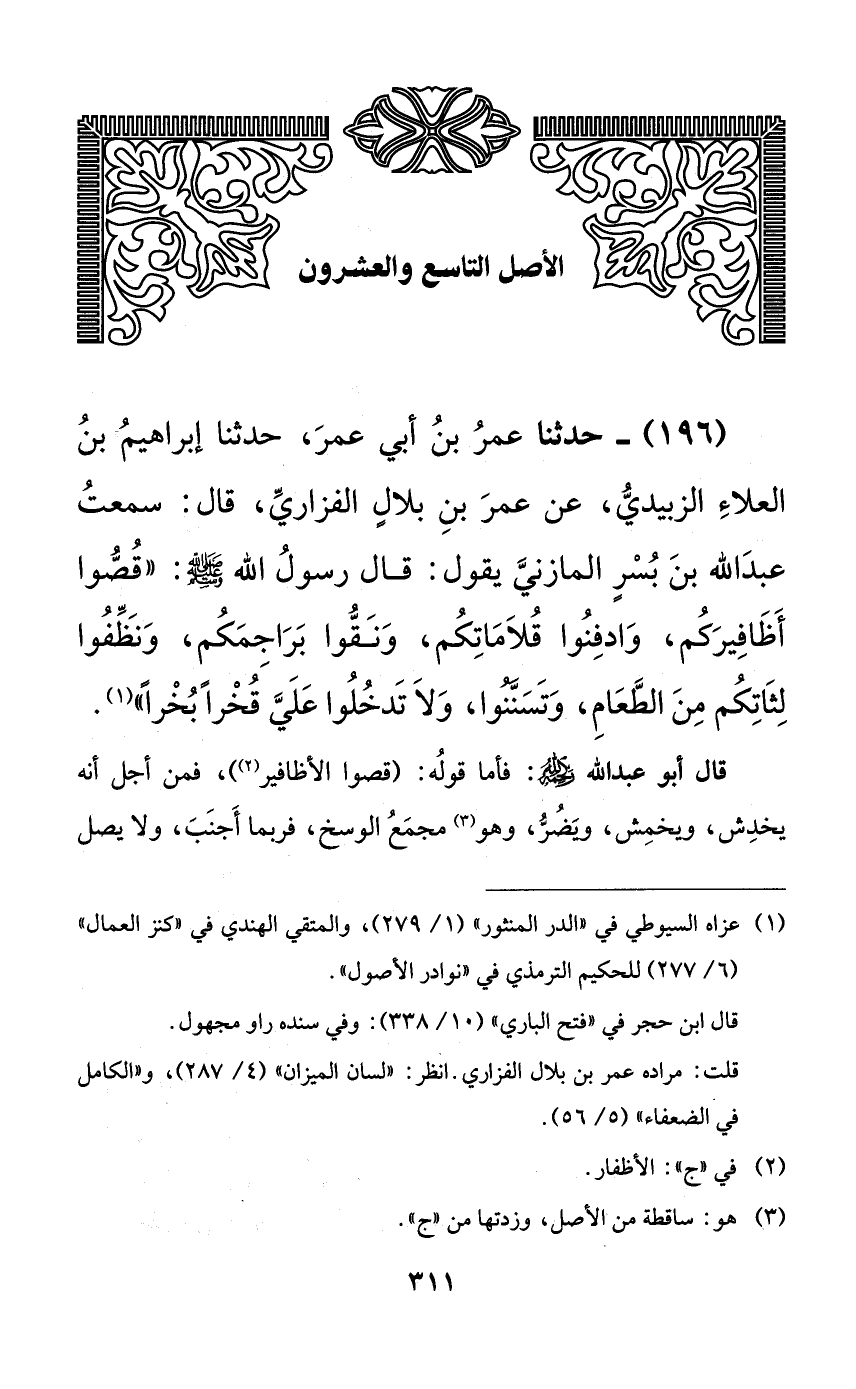 الأصل التاسع والعشرون
(١٩٦) ـ حدثنا عمرُ بنُ أبي عمرَ، حدثنا إبراهيمُ بنُ
العلاءِ الزبيديُّ، عن عمرَ بنِ بلالٍ الفزاريِّ، قال: سمعتُ
عبدَالله بنَ بُسْرٍ المازنيَّ يقول: قـال رسولُ الله ﷺ: «قُصُّوا
أَظَافِيرَكُم، وَادفِنُوا قُلاَمَاتِكُم، وَنَـقُّوا بَرَاجِمَكُم، وَنَظِّفُوا
لِثَاتِكُم مِنَ الطَّعَامِ، وَتَسَنَّنُوا، وَلاَ تَدخُلُوا عَلَيَّ قُخْراً بُخْراً»(١).
قال أبو عبدالله رحمه الله: فأما قولُه: (قصوا الأظافير(٢))، فمن أجل أنه
يخدِش، ويخمِش، ويَضُرُّ، وهو(٣) مجمَعُ الوسخ، فربما أَجنَبَ، ولا يصل
(١) عزاه السيوطي في «الدر المنثور» (١/ ٢٧٩)، والمتقي الهندي في «كنز العمال»
(٦/ ٢٧٧) للحكيم الترمذي في «نوادر الأصول».
قال ابن حجر في «فتح الباري» (١٠/ ٣٣٨): وفي سنده راو مجهول.
قلت: مراده عمر بن بلال الفزاري. انظر: «لسان الميزان» (٤/ ٢٨٧)، و«الكامل
في الضعفاء» (٥/ ٥٦).
(٢) في «ج»: الأظفار.
(٣) هو: ساقطة من الأصل، وزدتها من «ج».
٣١١